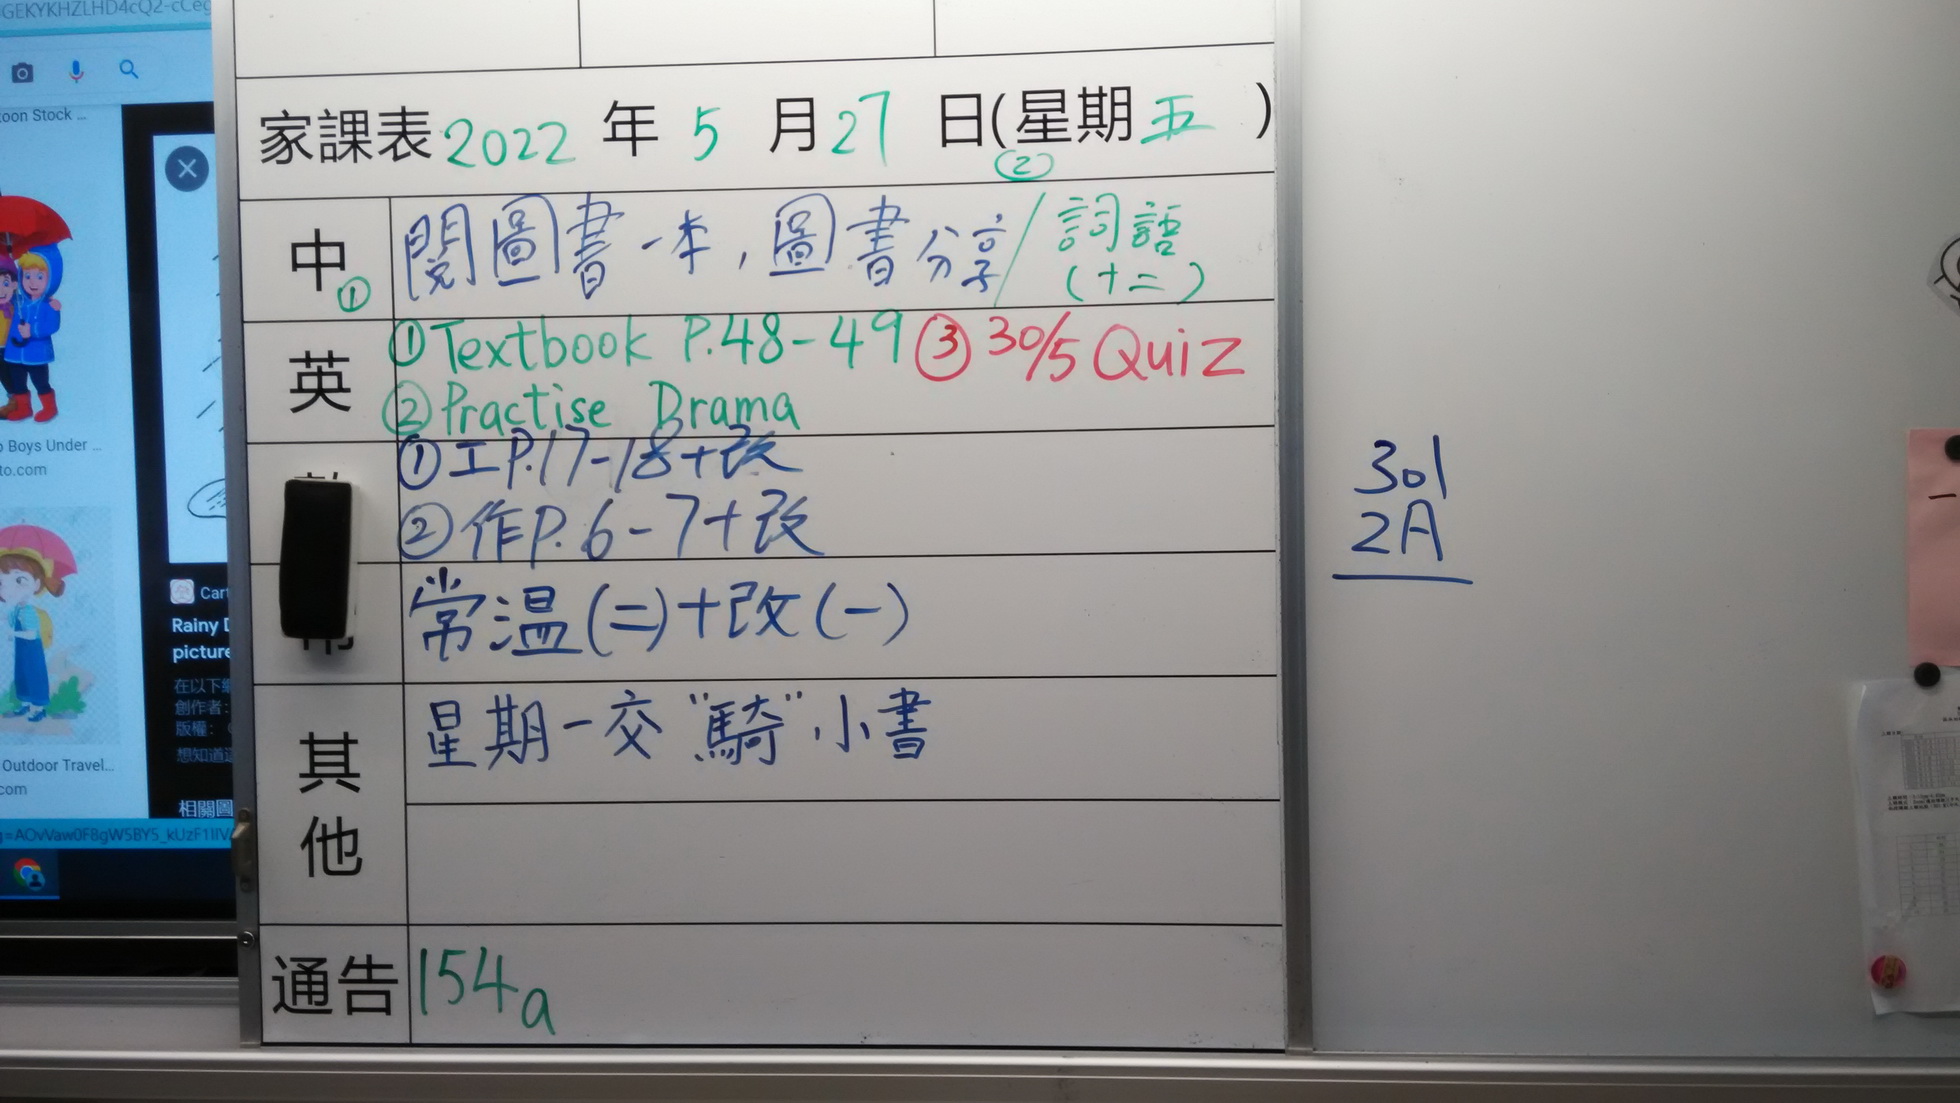 GEKYKHZLHD4cQ2-cCeg
oon Stock ...
Boys Under ...
to.com
Cart
Rainy D
picture
在以下網
創作者：
版權：
想知道這
Outdoor Travel...
com
相關圖
=AOvVaw0FBgW5BY5_kUzF1IIV
家課表2022年5月27日(星期五)
②
中① 閱圖書一本,圖書分享/詞語
(十二)
英 ①Textbook P.48-49 ③30/5 Quiz
②Practise Drama
①工P.17-18+改
②作P.6-7+改
常 常温(二)+改(一)
其他 星期一交"騎"小書
通告 154a
301
2A
一